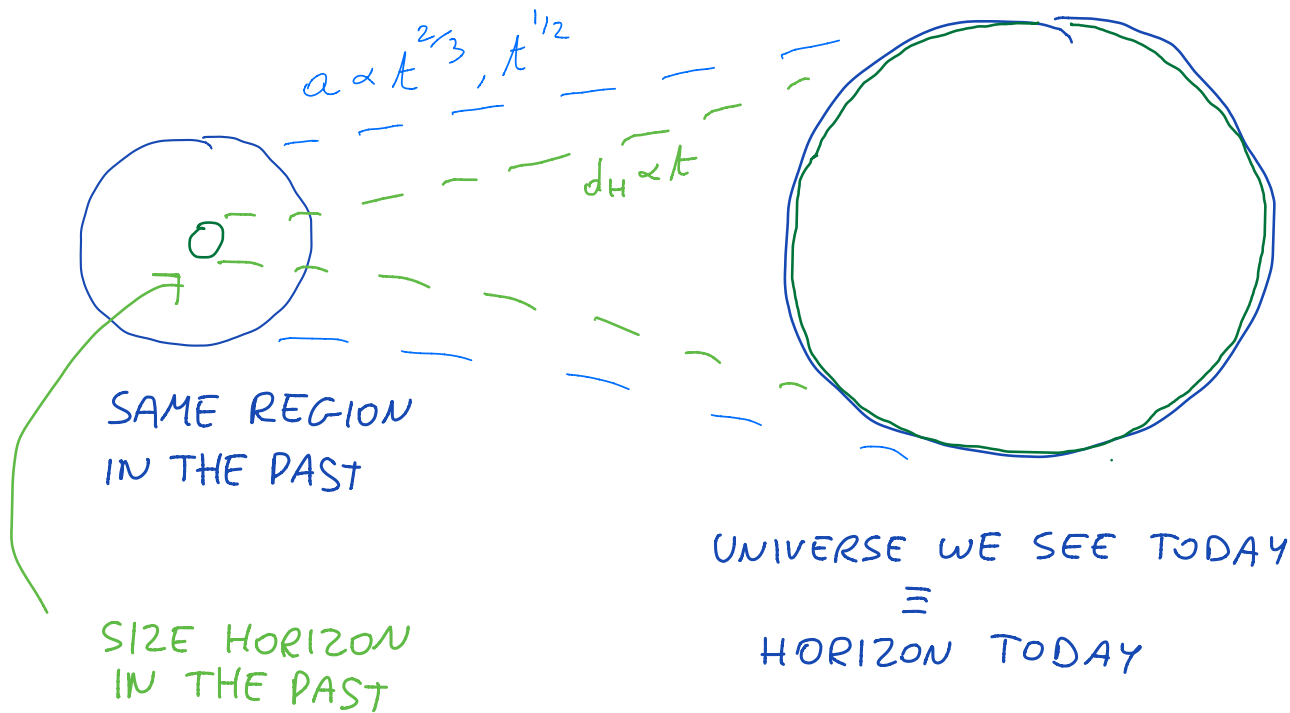 a ∝ t^{2/3}, t^{1/2}
d_H ∝ t
SAME REGION
IN THE PAST
UNIVERSE WE SEE TODAY
≡
HORIZON TODAY
SIZE HORIZON
IN THE PAST